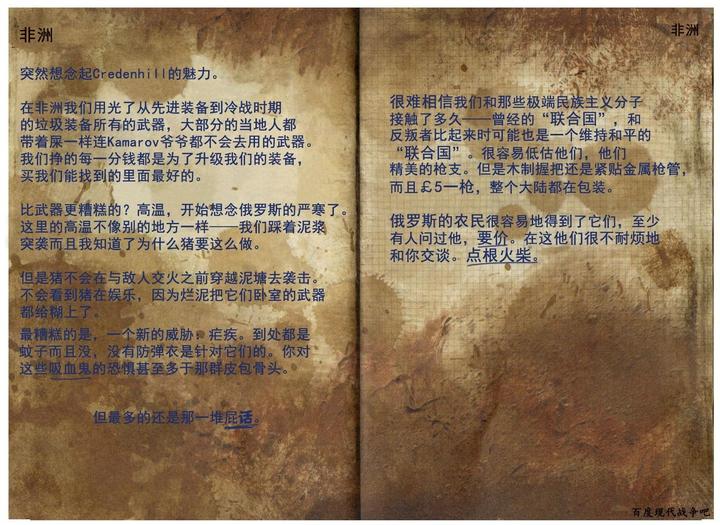 非洲
突然想念起Credenhill的魅力。
在非洲我们用光了从先进装备到冷战时期
的垃圾装备所有的武器，大部分的当地人都
带着屎一样连Kamarov爷爷都不会去用的武器。
我们挣的每一分钱都是为了升级我们的装备，
买我们能找到的里面最好的。
比武器更糟糕的？高温，开始想念俄罗斯的严寒了。
这里的高温不像别的地方一样——我们踩着泥浆
突袭而且我知道了为什么猪要这么做。
但是猪不会在与敌人交火之前穿越泥塘去袭击。
不会看到猪在娱乐，因为烂泥把它们卧室的武器
都给糊上了。
最糟糕的是，一个新的威胁：疟疾。到处都是
蚊子而且没，没有防弹衣是针对它们的。你对
这些吸血鬼的恐惧甚至多于那群皮包骨头。
但最多的还是那一堆屁话。
非洲
很难相信我们和那些极端民族主义分子
接触了多久——曾经的“联合国”，和
反叛者比起来时可能也是一个维持和平的
“联合国”。很容易低估他们，他们
精美的枪支。但是木制握把还是紧贴金属枪管，
而且£5一枪，整个大陆都在包装。
俄罗斯的农民很容易地得到了它们，至少
有人问过他，要价。在这他们很不耐烦地
和你交谈。点根火柴。
百度现代战争吧